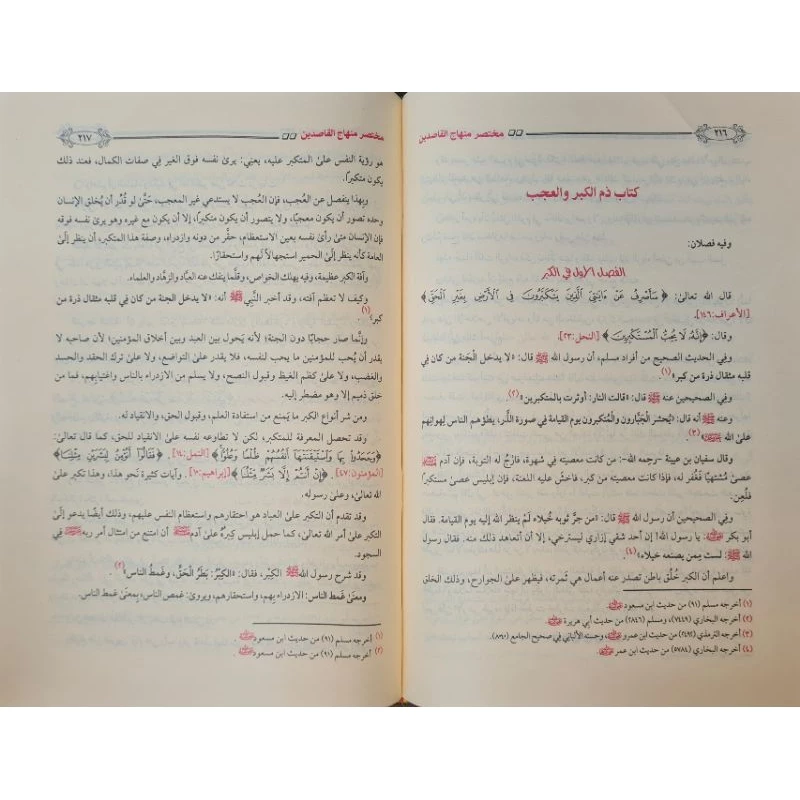 ٢١٦
مختصر منهاج القاصدين
كتاب ذم الكبر والعجب
وفيه فصلان:
الفصل الأول في الكبر
قال الله تعالى: ﴿سَأَصْرِفُ عَنْ ءَايَٰتِيَ ٱلَّذِينَ يَتَكَبَّرُونَ فِي ٱلْأَرْضِ بِغَيْرِ ٱلْحَقِّ﴾
[الأعراف:١٤٦].
وقال: ﴿إِنَّهُۥ لَا يُحِبُّ ٱلْمُسْتَكْبِرِينَ﴾ [النحل:٢٣].
وفي الحديث الصحيح من أفراد مسلم، أن رسول الله ﷺ قال: «لا يدخل الجَنة من كان في
قلبه مثقال ذرة من كبر»(١).
وفي الصحيحين عنه ﷺ قال: «قالت النار: أوثرت بالمتكبرين»(٢).
وعنه ﷺ أنه قال: «يُحشر الجَبَّارون والمُتكبرون يوم القيامة في صورة الذَّر، يطؤهم الناس لِهوانِهم
علىٰ الله ﷻ»(٣).
وقال سفيان بن عيينة -رحمه الله-: من كانت معصيته في شهوة، فارْجُ له التوبة، فإن آدم ﷺ
عصىٰ مُشتهيًا فغُفر له، فإذا كانت معصيته من كبر، فاخشَ عليه اللعنة، فإن إبليس عصىٰ مستكبرًا
فلُعِن.
وفي الصحيحين أن رسول الله ﷺ قال: «من جرَّ ثوبه خُيلاء لَمْ ينظر الله إليه يوم القيامة. فقال
أبو بكر ﵁: يا رسول الله! إن أحد شقي إزاري ليسترخي، إلا أن أتعاهد ذلك منه. فقال رسول
الله ﷺ: لست مِمن يصنعه خيلاء»(٤).
واعلم أن الكبر خُلُق باطن تصدر عنه أعمال هي ثَمرته، فيظهر علىٰ الجوارح، وذلك الخلق
(١) أخرجه مسلم (٩١) من حديث ابن مسعود ﵁.
(٢) أخرجه البخاري (٧٤٤٩)، ومسلم (٢٨٤٦) من حديث أبي هريرة ﵁.
(٣) أخرجه الترمذي (٢٤٩٢) من حديث ابن عمرو ﵁، وحسنه الألباني في صحيح الجامع (٨٠٤٠).
(٤) أخرجه البخاري (٥٧٨٤) من حديث ابن عمر ﵁.
مختصر منهاج القاصدين
٢١٧
هو رؤية النفس علىٰ المتكبر عليه، يعني: يرىٰ نفسه فوق الغير في صفات الكمال، فعند ذلك
يكون متكبرًا.
وبِهذا ينفصل عن العُجب، فإن العُجب لا يستدعي غير المعجب، حَتَّىٰ لو قُدِّر أن يُخلق الإنسان
وحده تصور أن يكون معجبًا، ولا يتصور أن يكون متكبرًا، إلا أن يكون مع غيره، وهو يرىٰ نفسه فوقه
فإن الإنسان متىٰ رأىٰ نفسه بعين الاستعظام، حقَّر من دونه وازدراه، وصفة هذا المتكبر، أن ينظر إلَىٰ
العامة كأنه ينظر إلَىٰ الحمير استجهالاً لَهُم واستحقارًا.
وآفة الكبر عظيمة، وفيه يهلك الخواص، وقلَّما ينفك عنه العبَّاد والزهَّاد والعلماء.
وكيف لا تعظم آفته، وقد أخبر النَّبِي ﷺ أنه: «لا يدخل الجنة من كان في قلبه مثقال ذرة من
كبر»(١).
وإنَّما صار حجابًا دون الجَنة؛ لأنه يَحول بين العبد وبين أخلاق المؤمنين؛ لأن صاحبه لا
يقدر أن يُحب للمؤمنين ما يحب لنفسه، فلا يقدر علىٰ التواضع، ولا علىٰ ترك الحقد والحسد
والغضب، ولا علىٰ كظم الغيظ وقبول النصح، ولا يسلم من الازدراء بالناس واغتيابِهم، فما من
خلق ذَميم إلا وهو مضطر إليه.
ومن شر أنواع الكبر ما يَمنع من استفادة العلم، وقبول الحق، والانقياد له.
وقد تحصل المعرفة للمتكبر، لكن لا تطاوعه نفسه علىٰ الانقياد للحق، كما قال تعالىٰ:
﴿وَجَحَدُوا۟ بِهَا وَٱسْتَيْقَنَتْهَآ أَنفُسُهُمْ ظُلْمًا وَعُلُوًّا﴾ [النمل:١٤]. ﴿فَقَالُوٓا۟ أَنُؤْمِنُ لِبَشَرَيْنِ مِثْلِنَا﴾
[المؤمنون:٤٧]. ﴿إِنْ أَنتُمْ إِلَّا بَشَرٌ مِّثْلُنَا﴾ [إبراهيم:١٠]. وآيات كثيرة نَحو هذا، وهذا تكبر علىٰ
الله تعالىٰ، وعلىٰ رسوله.
وقد تقدم أن التكبر علىٰ العباد هو احتقارهم واستعظام النفس عليهم، وذلك أيضًا يدعو إلَىٰ
التكبر علىٰ أمر الله تعالىٰ، كما حمل إبليس كِبره علىٰ آدم ﷺ أن امتنع من امتثال أمر ربه ﷻ في
السجود.
وقد شرح رسول الله ﷺ الكِبْر، فقال: «الكِبْرُ: بَطَرُ الْحَقِّ، وغَمطُ الناس»(٢).
ومعنَىٰ غَمط الناس: الازدراء بِهم، واستحقارهم، ويروىٰ: غمص الناس، بِمعنَىٰ غمط الناس.
(١) أخرجه مسلم (٩١) من حديث ابن مسعود ﵁.
(٢) أخرجه مسلم (٩١) من حديث ابن مسعود ﵁.